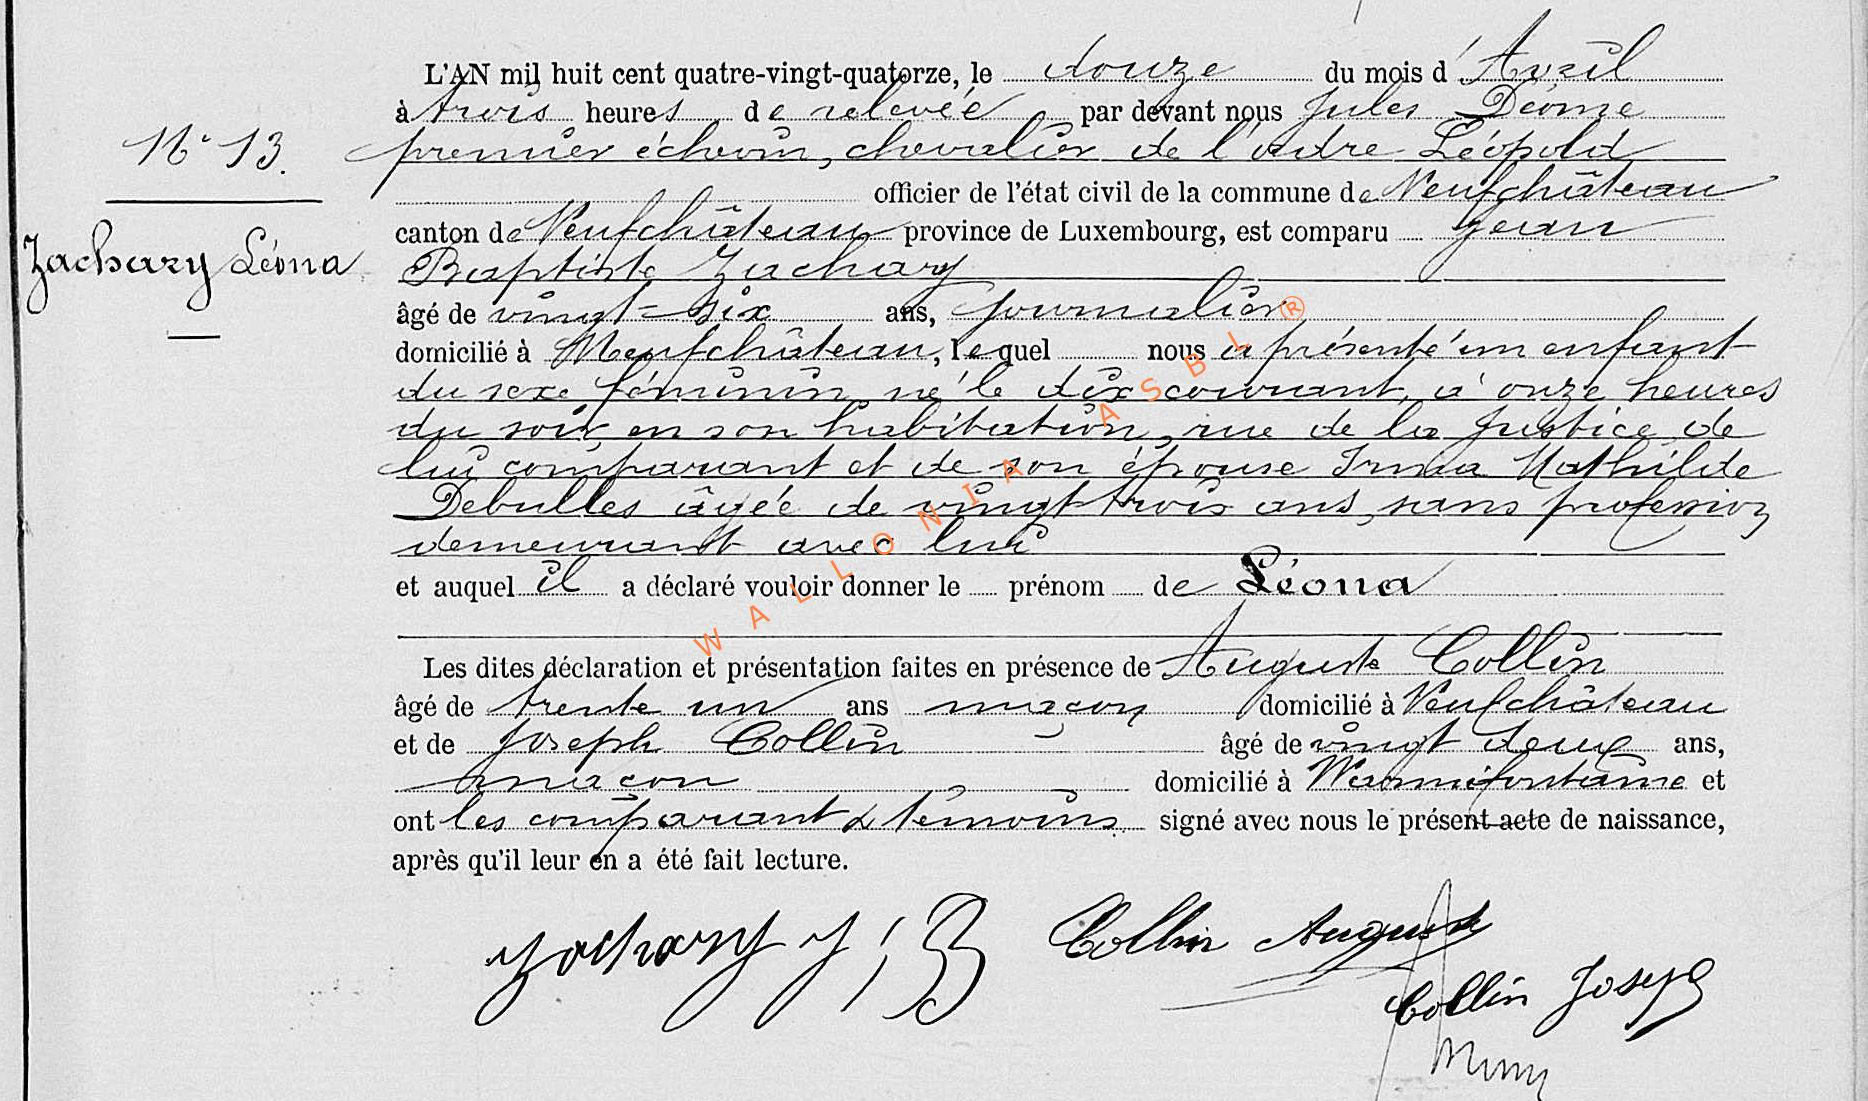 L'AN mil huit cent quatre-vingt-quatorze, le douze du mois d'Avril
à trois heures de relevée par devant nous Jules Déome
N° 13.
premier échevin, chevalier de l'ordre Léopold
officier de l'état civil de la commune de Neufchâteau
canton de Neufchâteau province de Luxembourg, est comparu Jean
Zachary Léona
Baptiste Zachary
âgé de vingt-six ans, journalier
domicilié à Neufchâteau, lequel nous a présenté un enfant
du sexe féminin né le dix courant, à onze heures
du soir, en son habitation, rue de la Justice de
lui comparant et de son épouse Irma Mathilde
Debulles âgée de vingt trois ans, sans profession
demeurant avec lui
et auquel il a déclaré vouloir donner le prénom de Léona
Les dites déclaration et présentation faites en présence de Auguste Collin
âgé de trente un ans maçon domicilié à Neufchâteau
et de Joseph Collin âgé de vingt deux ans,
maçon domicilié à Warmifontaine et
ont les comparant & témoins signé avec nous le présent acte de naissance,
après qu'il leur en a été fait lecture.
Zachary J, B Collin Auguste
Collin Joseph
WALLONIA ASBL ®